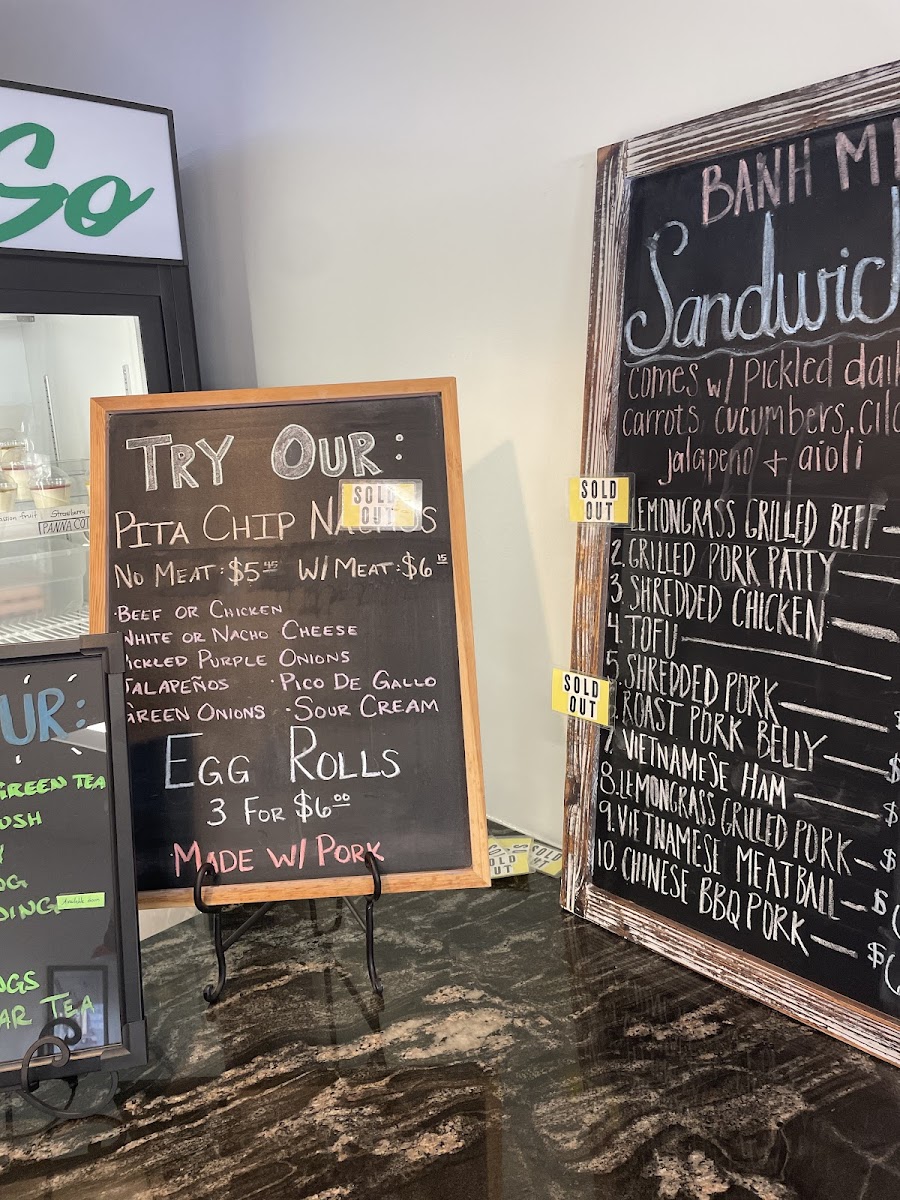 Go
Strawberry
PANNA
TRY OUR:
SOLD
OUT
PITA CHIP NACHOS
NO MEAT: $5.45 W/ MEAT: $6.15
BEEF OR CHICKEN
WHITE OR NACHO CHEESE
PICKLED PURPLE ONIONS
JALAPEÑOS · PICO DE GALLO
GREEN ONIONS · SOUR CREAM
EGG ROLLS
3 FOR $6.00
MADE W/ PORK
UR:
GREEN TEA
Available
TEA
SOLD
OUT
SOLD
OUT
BANH MI
Sandwich
comes w/ pickled
carrots, cucumbers,
jalapeno + aioli
SOLD
OUT
LEMONGRASS GRILLED BEEF
2. GRILLED PORK PATTY
3. SHREDDED CHICKEN
4. TOFU
5. SHREDDED PORK
SOLD
OUT
ROAST PORK BELLY
7. VIETNAMESE HAM
8. LEMONGRASS GRILLED PORK $
9. VIETNAMESE MEATBALL $
10. CHINESE BBQ PORK $